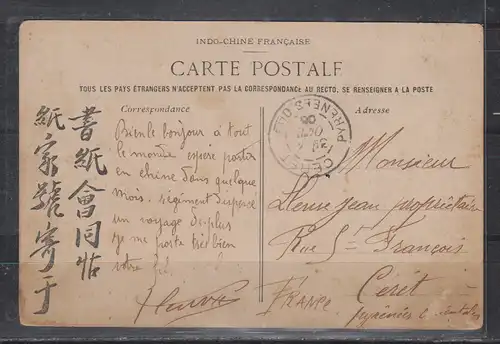 INDO-CHINE FRANÇAISE
CARTE POSTALE
TOUS LES PAYS ÉTRANGERS N'ACCEPTENT PAS LA CORRESPONDANCE AU RECTO, SE RENSEIGNER A LA POSTE
Correspondance
Adresse
Bien le bonjour a tout
le monde espère partir
en chine dans quelque
mois. Régiment
un voyage de plus
je me porte très bien
votre fils
CERET
PYRÉNÉES OR
Monsieur
Jean propriétaire
Rue St François
Céret
France
pyrénées orientales
書紙會同帖
紙家號寄于